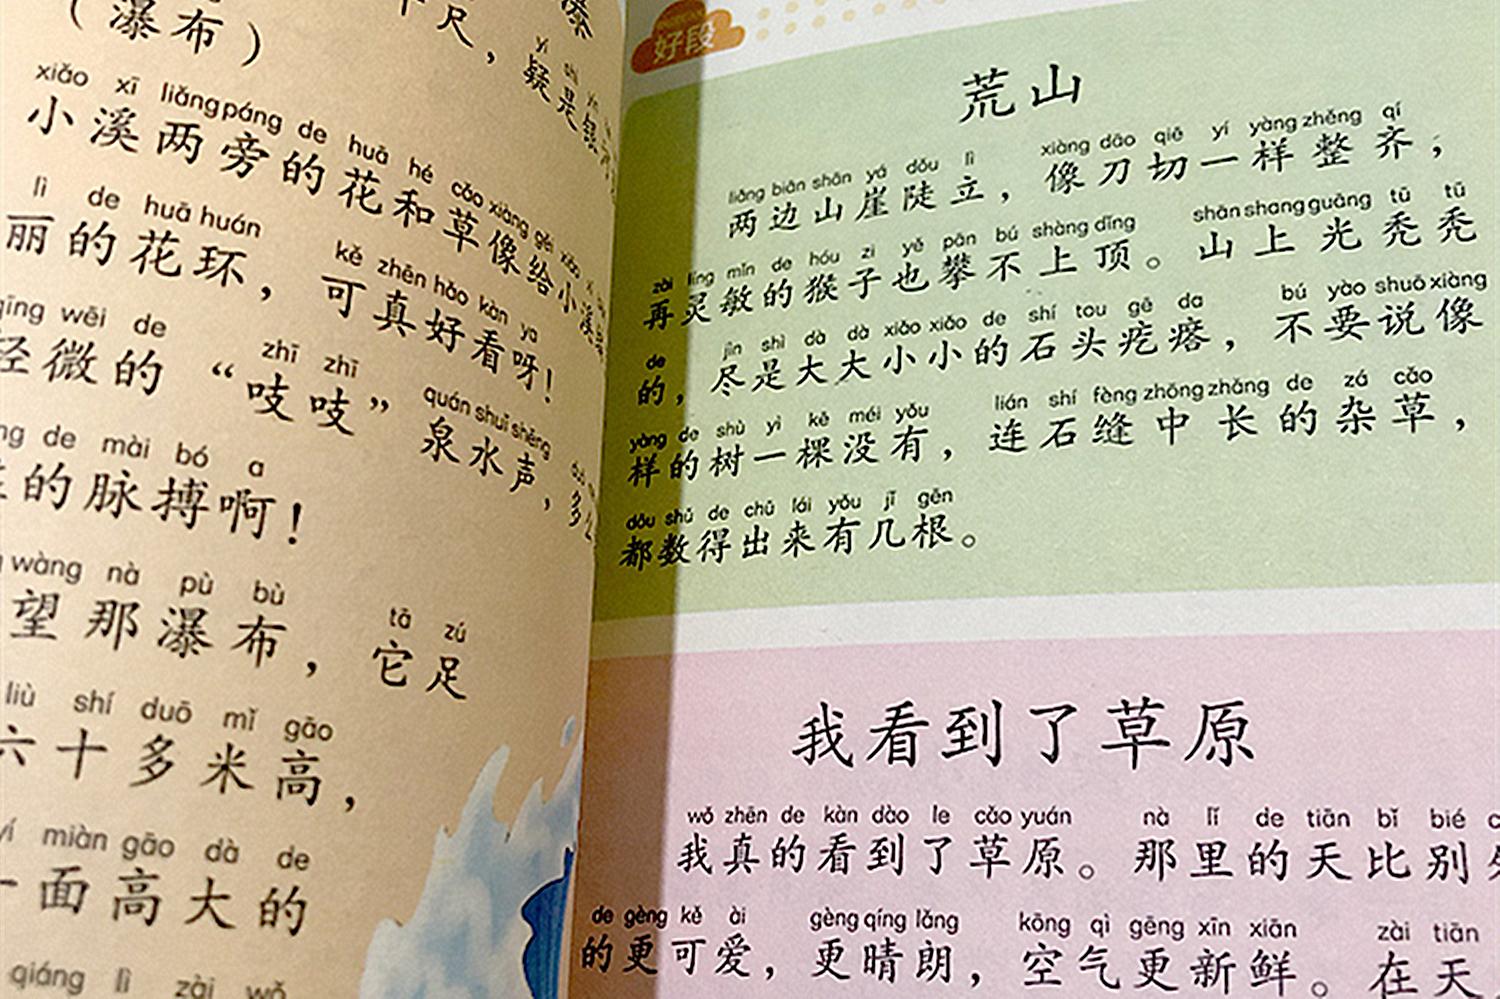 （瀑布）
尺，
yí shì
疑是银
xiǎo xī liǎng páng de huā hé cǎo xiàng gěi xiǎo
小溪两旁的花和草像给小溪
lì de huā huán kě zhēn hǎo kàn ya
丽的花环，可真好看呀！
qīng wēi de zhī zhī quán shuǐ shēng
轻微的“吱吱”泉水声，多么
de mài bó a
的脉搏啊！
wàng nà pù bù tā zú
望那瀑布，它足
liù shí duō mǐ gāo
六十多米高，
yí miàn gāo dà de
一面高大的
qiáng lì zài wǒ
好段
荒山
liǎng biān shān yá dǒu lì xiàng dāo qiē yí yàng zhěng qí
两边山崖陡立，像刀切一样整齐，
zài líng mǐn de hóu zi yě pān bú shàng dǐng shān shang guāng tū tū
再灵敏的猴子也攀不上顶。山上光秃秃
de jìn shì dà dà xiǎo xiǎo de shí tou gē da bú yào shuō xiàng
的，尽是大大小小的石头疙瘩，不要说像
yàng de shù yì kē méi yǒu lián shí fèng zhōng zhǎng de zá cǎo
样的树一棵没有，连石缝中长的杂草，
dōu shǔ de chū lái yǒu jǐ gēn
都数得出来有几根。
我看到了草原
wǒ zhēn de kàn dào le cǎo yuán nà lǐ de tiān bǐ bié
我真的看到了草原。那里的天比别
de gèng kě ài gèng qíng lǎng kōng qì gèng xīn xiān zài tiān
的更可爱，更晴朗，空气更新鲜。在天